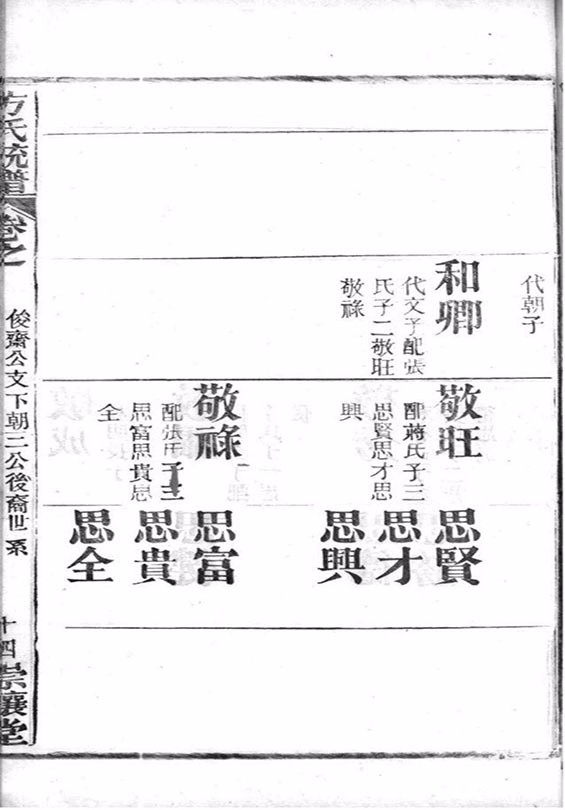 代朝子
和卿
代文子配張
氏子二敬旺
敬祿
敬旺
配蔣氏子三
思賢思才思
興
敬祿
配張氏子三
思富思貴思
全
思賢
思才
思興
思富
思貴
思全
方氏統譜
卷之
俊齋公文下朝二公後裔世系
十四
崇讓堂